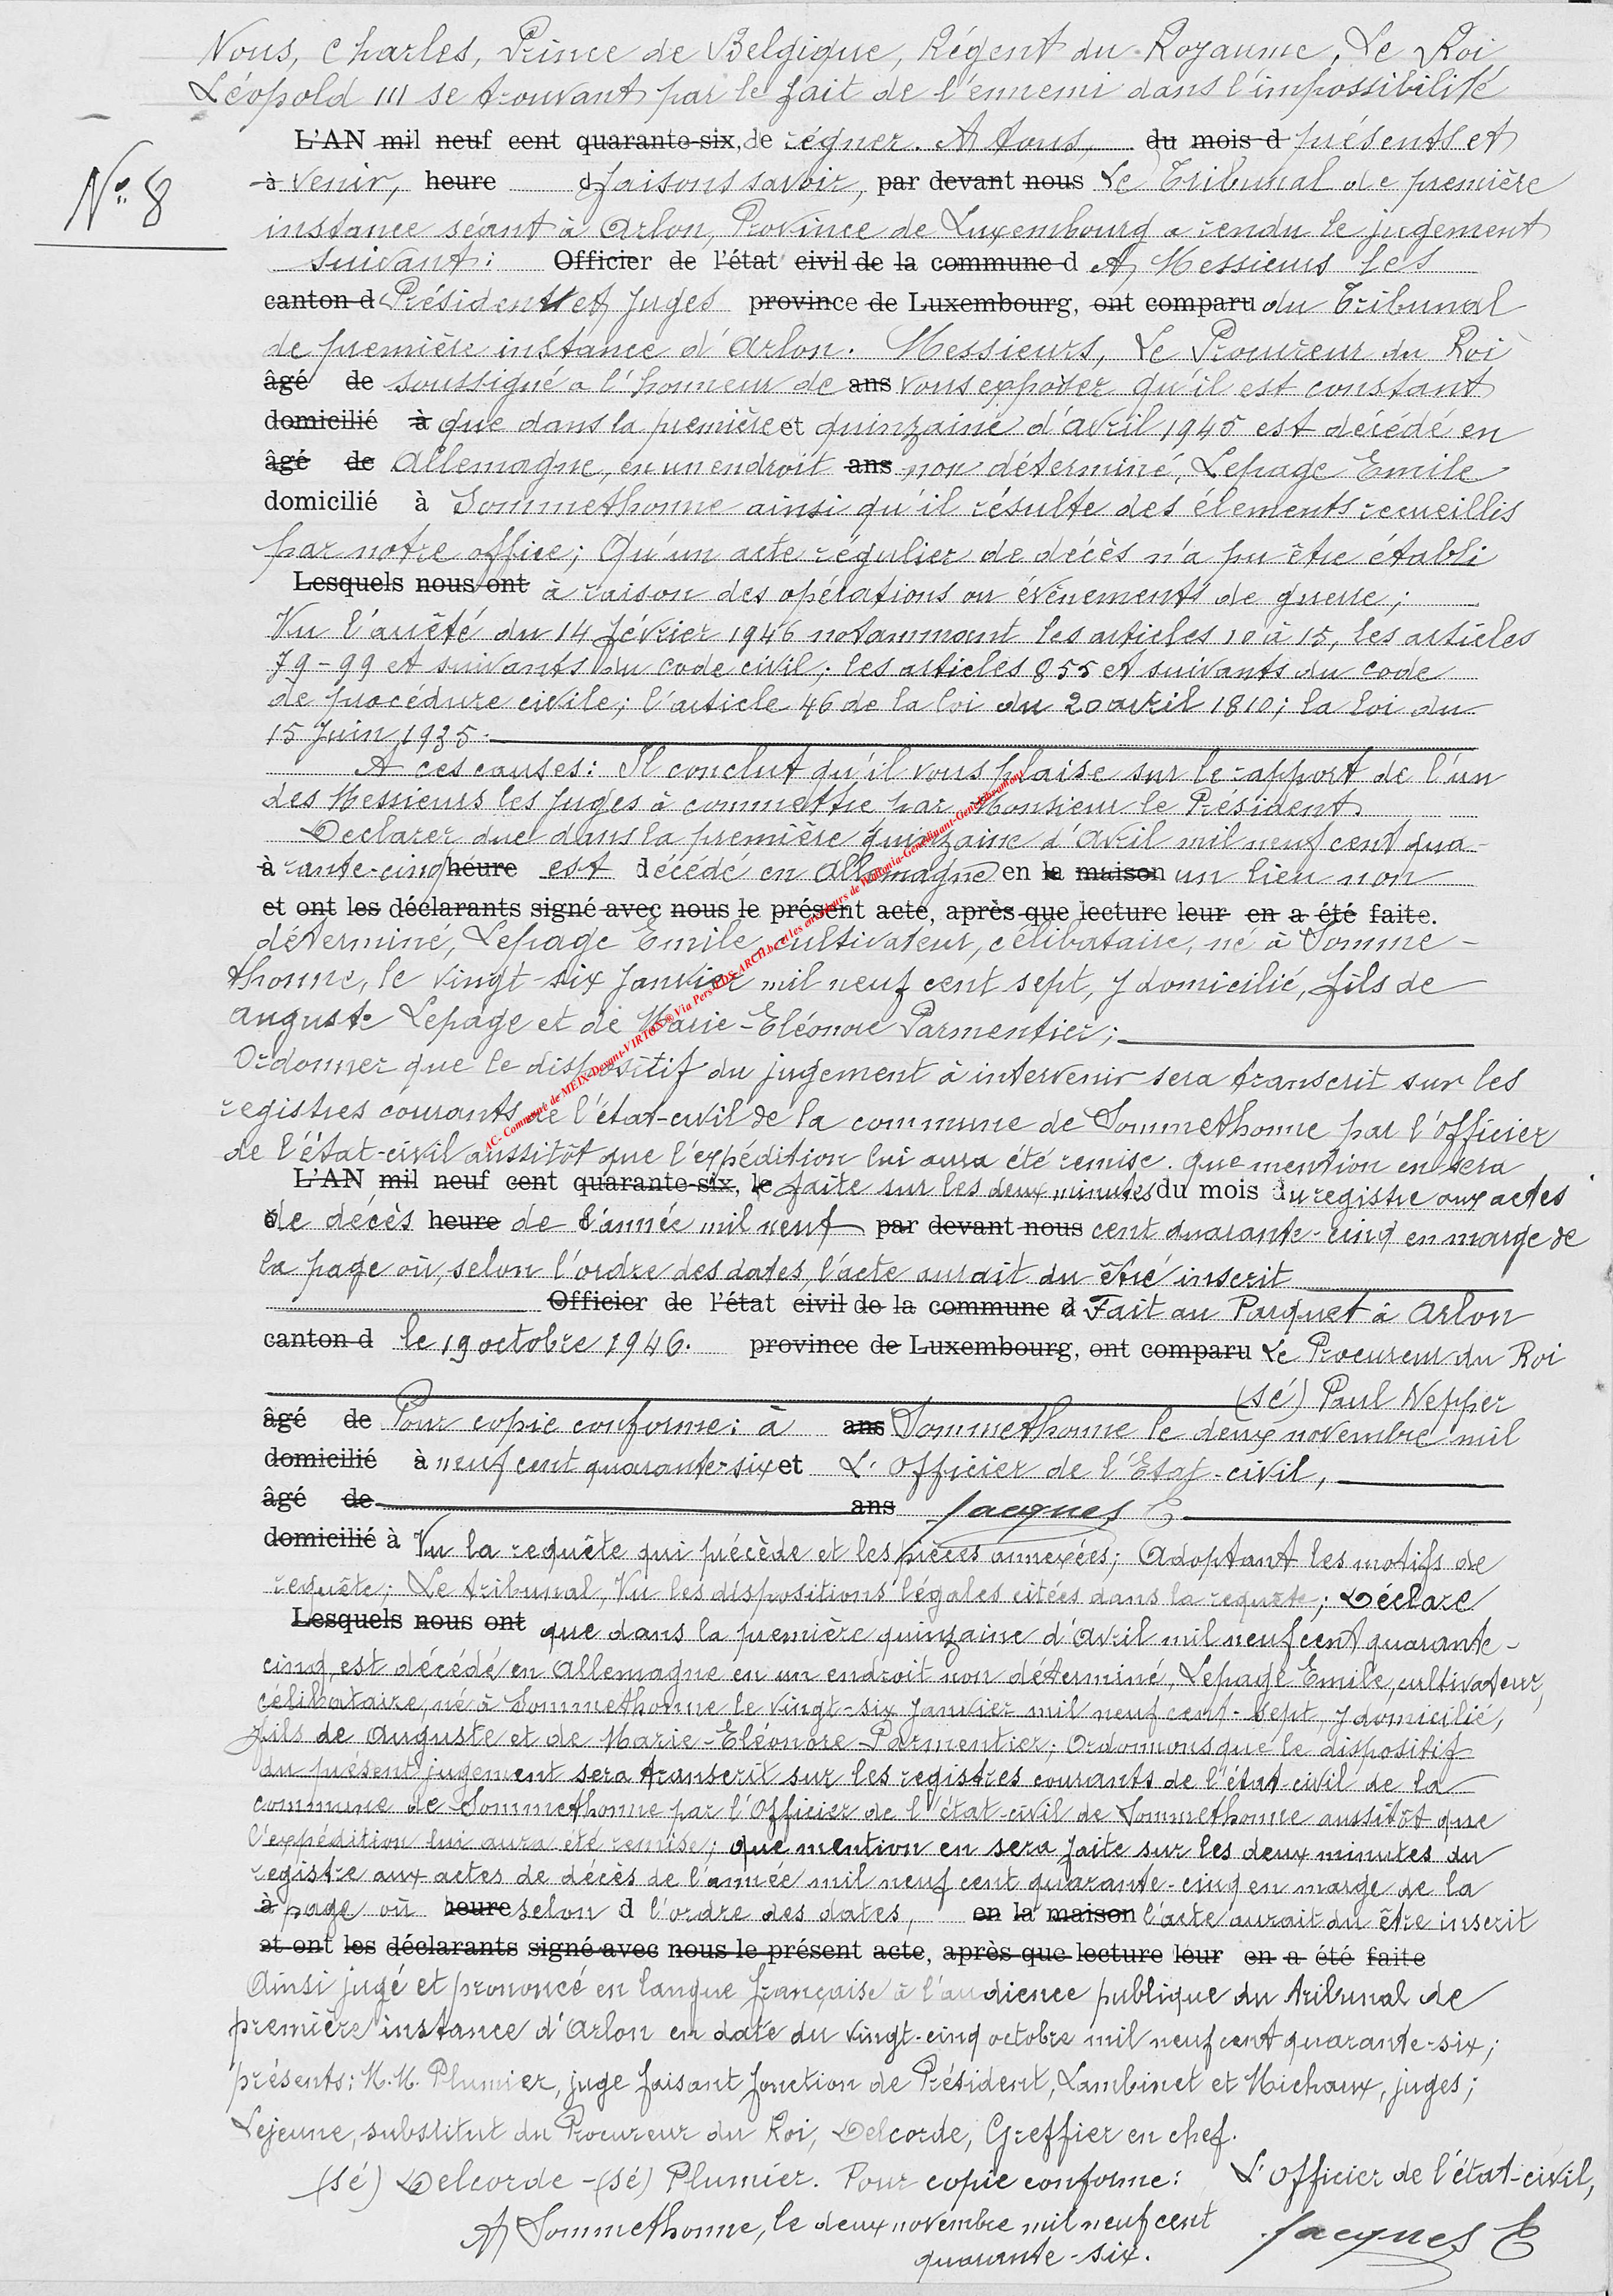 Nous, Charles, Prince de Belgique, Régent du Royaume, Le Roi
Léopold III se trouvant par le fait de l'ennemi dans l'impossibilité
N° 8
L'AN mil neuf cent quarante-six, de régner. A tous, du mois d présents et
à venir, heure d faisons savoir, par devant nous Le Tribunal de première
instance séant à Arlon, Province de Luxembourg a rendu le jugement
suivant: Officier de l'état civil de la commune d A Messieurs les
canton d Président et Juges province de Luxembourg, ont comparu du Tribunal
de première instance d'Arlon. Messieurs, Le Procureur du Roi
âgé de soussigné a l'honneur de ans vous exposer qu'il est constant
domicilié à que dans la première et quinzaine d'Avril 1945 est décédé en
âgé de Allemagne, en un endroit ans non déterminé, Lepage Emile
domicilié à Sommethonne ainsi qu'il résulte des élements recueillis
par notre office; Qu'un acte régulier de décès n'a pu être établi
Lesquels nous ont à raison des opérations ou événements de guerre;
Vu l'arrêté du 14 février 1946 notammant les articles 10 à 15, les articles
79-99 et suivants du code civil; les articles 855 et suivants du code
de procédure civile; l'article 46 de la loi du 20 avril 1810; la loi du
15 Juin 1935.
A ces causes: Il conclut qu'il vous plaise sur le rapport de l'un
des Messieurs les Juges à commettre par Monsieur le Président
Declarer que dans la première quinzaine d'Avril mil neuf cent qua-
à rante-cinq heure est décédé en Allemagne en la maison un lieu non
et ont les déclarants signé avec nous le présent acte, après que lecture leur en a été faite.
déterminé, Lepage Emile cultivateur, célibataire, né à Somme-
thonne, le vingt-six Janvier mil neuf cent sept, y domicilié, fils de
Auguste Lepage et de Marie-Eléonore Parmentier;
Ordonner que le dispositif du jugement à intervenir sera transcrit sur les
registres courants de l'état-civil de la commune de Sommethonne par l'Officier
de l'état-civil aussitôt que l'expédition lui aura été remise. que mention en sera
L'AN mil neuf cent quarante-six, le faite sur les deux minutes du mois du registre aux actes
de décès heure de l'année mil neuf par devant nous cent quarante-cinq en marge de
la page où, selon l'ordre des dates, l'acte aurait du être inscrit
Officier de l'état civil de la commune d Fait au Parquet à Arlon
canton d le 19 octobre 1946. province de Luxembourg, ont comparu Le Procureur du Roi
(sé) Paul Nepper
âgé de Pour copie conforme: à ans Sommethonne le deux novembre mil
domicilié à neuf cent quarante-six et L'Officier de l'Etat-civil,
âgé de ans Jacques E
domicilié à Vu la requête qui précède et les pièces annexées; Adoptant les motifs de
requête; Le tribunal, Vu les dispositions légales citées dans la requête; Déclare
Lesquels nous ont que dans la première quinzaine d'Avril mil neuf cent quarante-
cinq est décédé en Allemagne en un endroit non déterminé, Lepage Emile, cultivateur,
célibataire, né à Sommethonne le vingt-six Janvier mil neuf cent-sept, y domicilié,
fils de Auguste et de Marie-Eléonore Parmentier; Ordonnons que le dispositif
du présent jugement sera transcrit sur les registres courants de l'état-civil de la
commune de Sommethonne par l'Officier de l'état-civil de Sommethonne aussitôt que
l'expédition lui aura été remise; que mention en sera faite sur les deux minutes du
registre aux actes de décès de l'année mil neuf cent quarante-cinq en marge de la
à page où heure selon d l'ordre des dates, en la maison l'acte aurait du être inscrit
et ont les déclarants signé avec nous le présent acte, après que lecture leur en a été faite
Ainsi jugé et prononcé en langue française à l'audience publique du tribunal de
première instance d'Arlon en date du vingt-cinq octobre mil neuf cent quarante-six;
présents: M.M. Plumier, juge faisant fonction de Président, Lambinet et Michaux, juges;
Lejeune, substitut du Procureur du Roi, Delcorde, Greffier en chef.
(sé) Delcorde - (sé) Plumier. Pour copie conforme: L'Officier de l'état-civil,
A Sommethonne, le deux novembre mil neuf cent
quarante-six. Jacques E